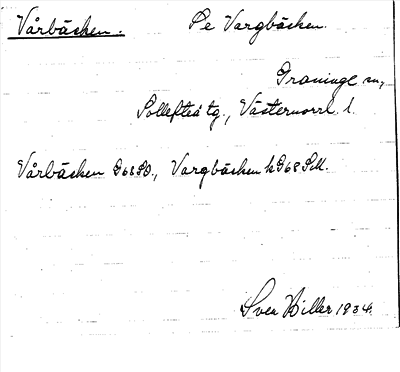 Vårbäcken. Se Vargbäcken.
Graninge sn,
Sollefteå tg., Västernorrl. l.
Vårbäcken G68SO., Vargbäcken k G68SM.
Svea Hiller 1934.